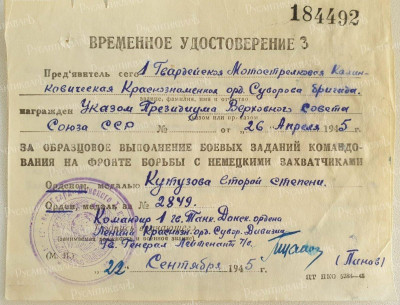 184492
ВРЕМЕННОЕ УДОСТОВЕРЕНИЕ 3
Пред'явитель сего 1 Гвардейская Мотострелковая Калин-
ковическая Краснознаменная орд. Суворова бригада.
звание, фамилия, имя и отчество
награжден Указом Президиума Верховного Совета
Союза ССР № от "26" Апреля 1945 г.
ЗА ОБРАЗЦОВОЕ ВЫПОЛНЕНИЕ БОЕВЫХ ЗАДАНИЙ КОМАНДО-
ВАНИЯ НА ФРОНТЕ БОРЬБЫ С НЕМЕЦКИМИ ЗАХВАТЧИКАМИ
Орденом, медалью Кутузова Второй степени.
Орден, медаль за № 2849.
Командир 1 гв. Танк. Донск. ордена
Ленина Краснозн. орд. Сувор. Дивизии
Гв. Генерал Лейтенант Т/в.
(М. П.)
(Панов)
"22" Сентября 1945 г.